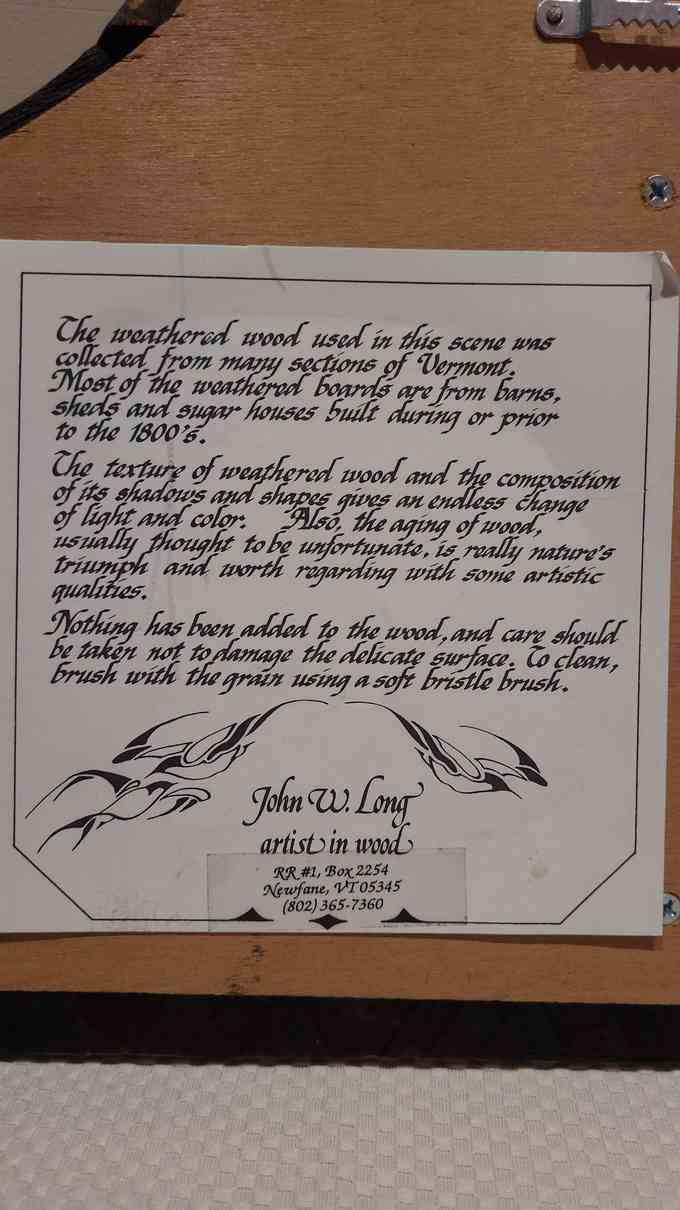 The weathered wood used in this scene was
collected from many sections of Vermont.
Most of the weathered boards are from barns,
sheds and sugar houses built during or prior
to the 1800's.
The texture of weathered wood and the composition
of its shadows and shapes gives an endless change
of light and color. Also, the aging of wood,
usually thought to be unfortunate, is really nature's
triumph and worth regarding with some artistic
qualities.
Nothing has been added to the wood, and care should
be taken not to damage the delicate surface. To clean,
brush with the grain using a soft bristle brush.
John W. Long
artist in wood
RR #1, Box 2254
Newfane, VT 05345
(802) 365-7360